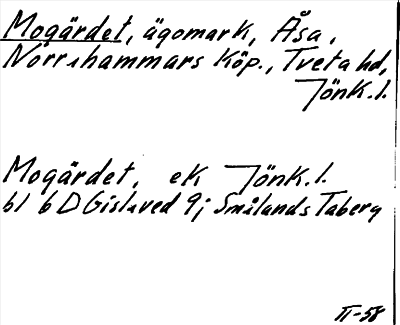 Mogärdet, ägomark, Åsa,
Norrahammars Köp., Tveta hd,
Jönk.l.
Mogärdet, ek Jönk.l.
bl 6 D Gislaved 9j Smålands Taberg
II-58